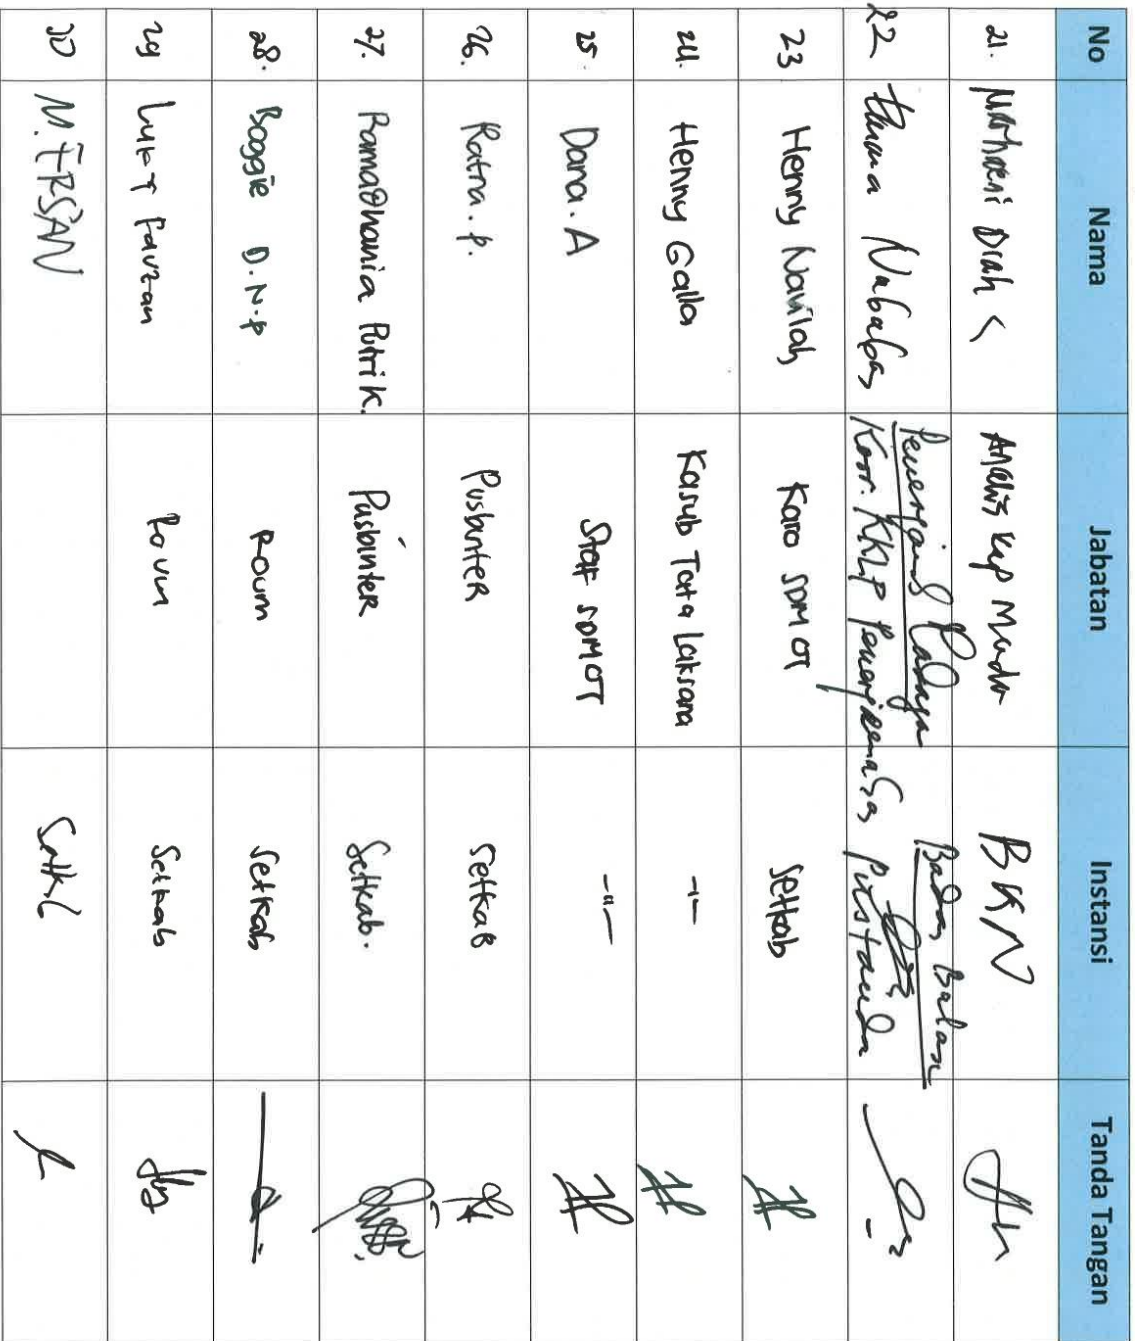 No Nama Jabatan Instansi Tanda Tangan
21. Diah S Analis Kep Muda BKN
22 Nababan Penerjemah Madya Badan Bahasa
Koor. KKLP Penerjemahan
23 Henny Navilah Karo SDMOT Setkab
24. Henny Galla Kasub Tata Laksana -"-
25. Dara. A Staf SDMOT -"-
26. Ratna. P. Pusbinter Setkab
27. Ramadhania Putri K. Pusbinter Setkab.
28. Boggie D.N.P Roum Setkab
29 Lukf Fauzan Roum Setkab
30 M. IRSAN